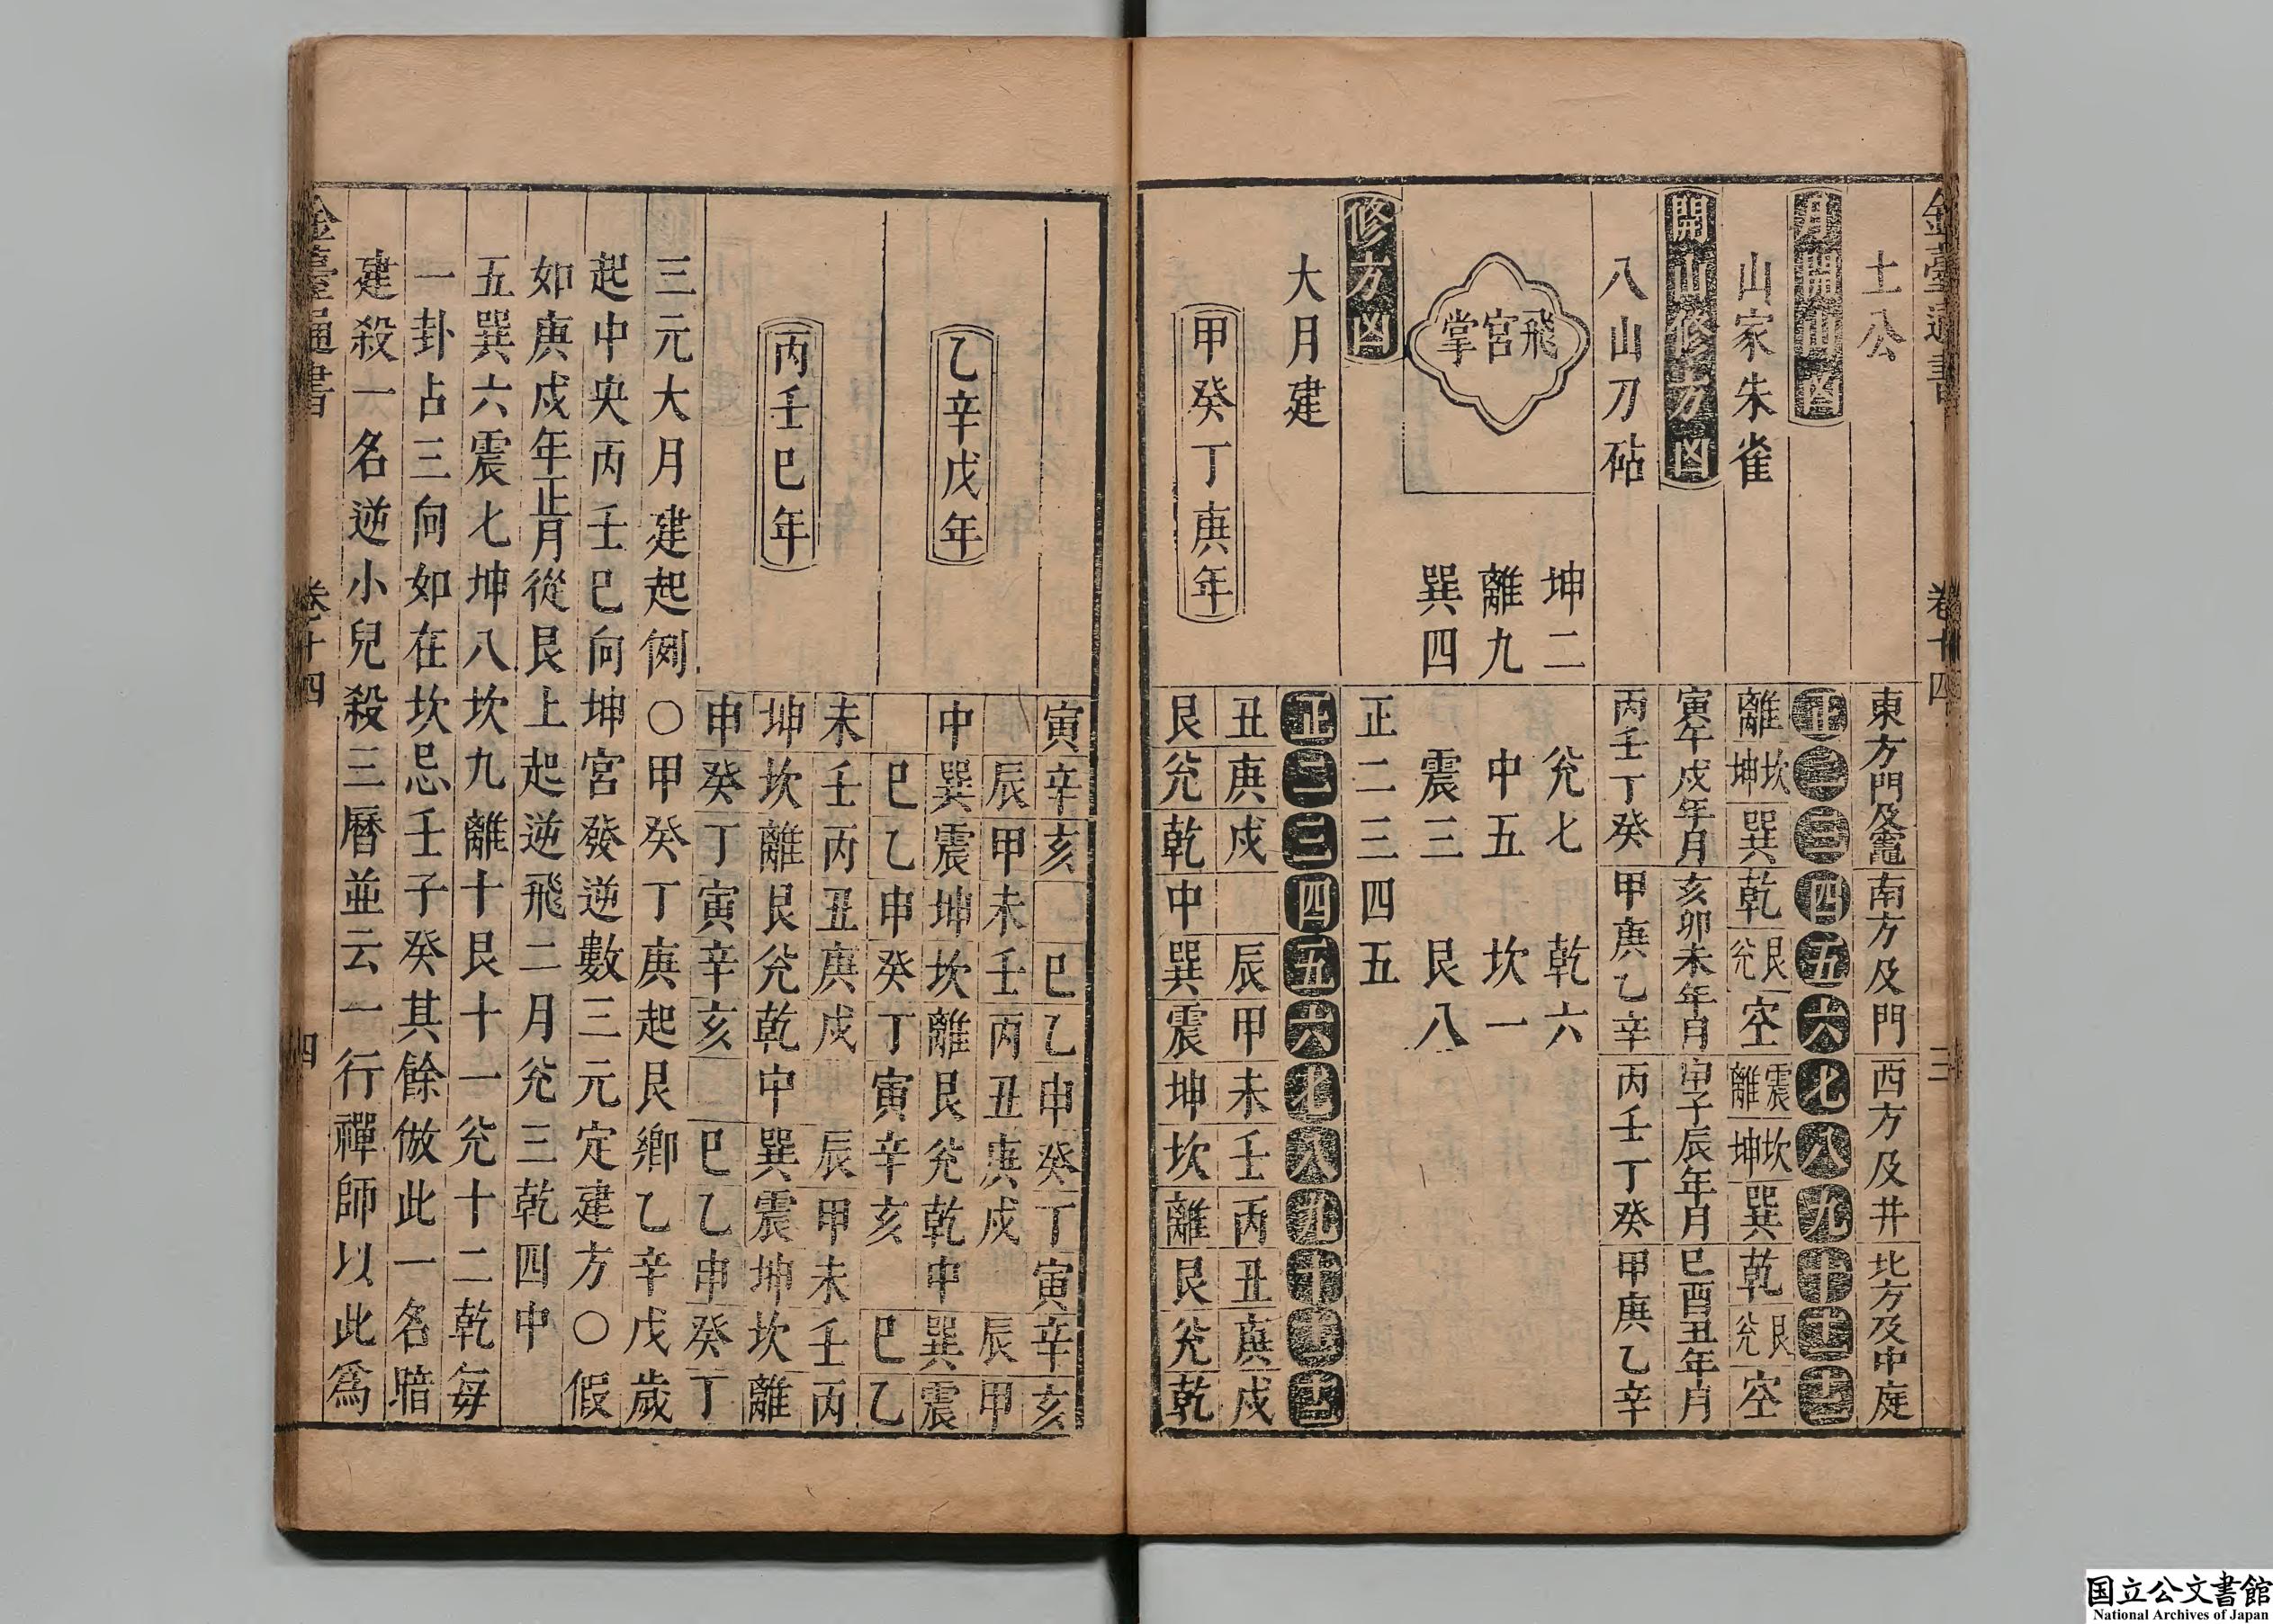 金臺通書 卷十四 三
土公 東方門及竈 南方及門 西方及井 北方及中庭
月開山凶 正二三四五六七八九十十一十二
山家朱雀 離 坎坤 巽 乾 艮兊 空 離震 坎坤 巽 乾 艮兊 空
開山修方凶 寅午戌年月 亥卯未年月 申子辰年月 巳酉丑年月
八山刀砧 丙壬丁癸 甲庚乙辛 丙壬丁癸 甲庚乙辛
坤二 兊七 乾六
飛宮掌 離九 中五 坎一
巽四 震三 艮八
正二三四五
修方凶 正二三四五六七八九十十一十二
大月建 丑庚戌 辰甲未壬丙丑庚戌
甲癸丁庚年 艮兊乾中巽震坤坎離艮兊乾
寅辛亥 巳乙申癸丁寅辛亥
辰甲未壬丙丑庚戌 辰甲
乙辛戊年 中巽震坤坎離艮兊乾中巽震
巳乙申癸丁寅辛亥 巳乙
未壬丙丑庚戌 辰甲未壬丙
丙壬巳年 坤坎離艮兊乾中巽震坤坎離
申癸丁寅辛亥 巳乙申癸丁
三元大月建起例○甲癸丁庚起艮鄉乙辛戊歲
起中央丙壬巳向坤宮發逆數三元定建方○假
如庚戌年正月從艮上起逆飛二月兊三乾四中
五巽六震七坤八坎九離十艮十一兊十二乾每
一卦占三向如在坎忌壬子癸其餘倣此一名暗
建殺一名逆小兒殺三曆並云一行禪師以此爲
金臺通書 卷十四 四
国立公文書館
National Archives of Japan